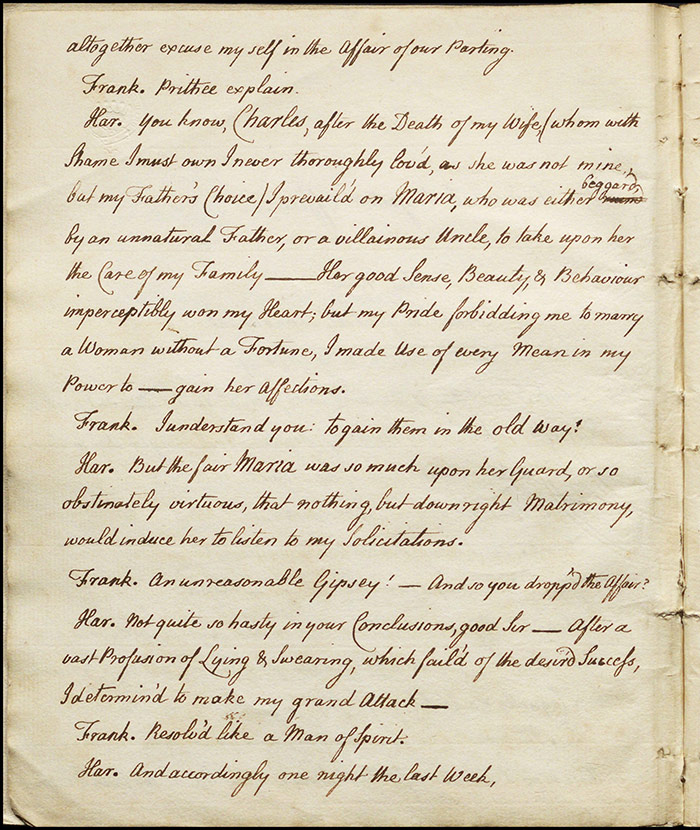 altogether excuse my self in the Affair of our Parting.
Frank. Prithee explain.
Har. You know, Charles, after the Death of my Wife, (whom with
Shame I must own I never thoroughly lov'd, as she was not mine,
but my Father's Choice) I prevail'd on Maria, who was either beggard,
by an unnatural Father, or a villainous Uncle, to take upon her
the Care of my Family — Her good Sense, Beauty, & Behaviour
imperceptibly won my Heart; but my Pride forbidding me to marry
a Woman without a Fortune, I made Use of every Mean in my
Power to — gain her Affections.
Frank. I understand you: to gain them in the old Way?
Har. But the fair Maria was so much upon her Guard, or so
obstinately virtuous, that nothing, but downright Matrimony,
would induce her to listen to my Solicitations.
Frank. An unreasonable Gipsey! — And so you dropp'd the Affair?
Har. Not quite so hasty in your Conclusions, good Sir — After a
vast Profusion of Lying & Swearing, which fail'd of the desir'd Success,
I determin'd to make my grand Attack —
Frank. Resolv'd like a Man of Spirit.
Har. And accordingly one night the last Week,